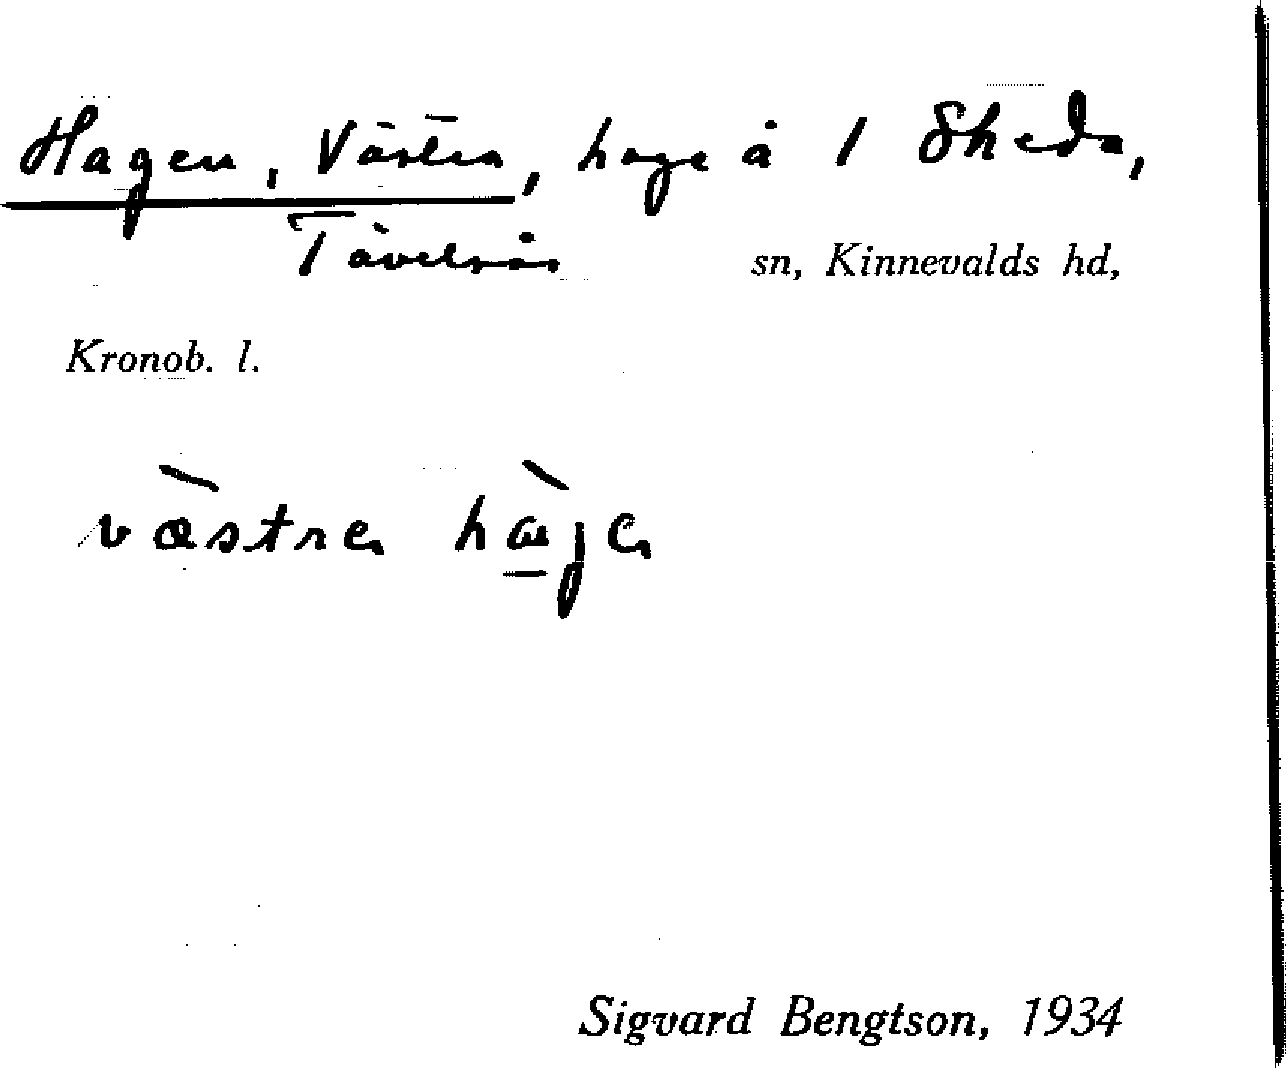 Hagen, Västra, hage å 1 Skeda,
Tävelsås sn, Kinnevalds hd,
Kronob. l.
væ̀stra hà̱ga
Sigvard Bengtson, 1934